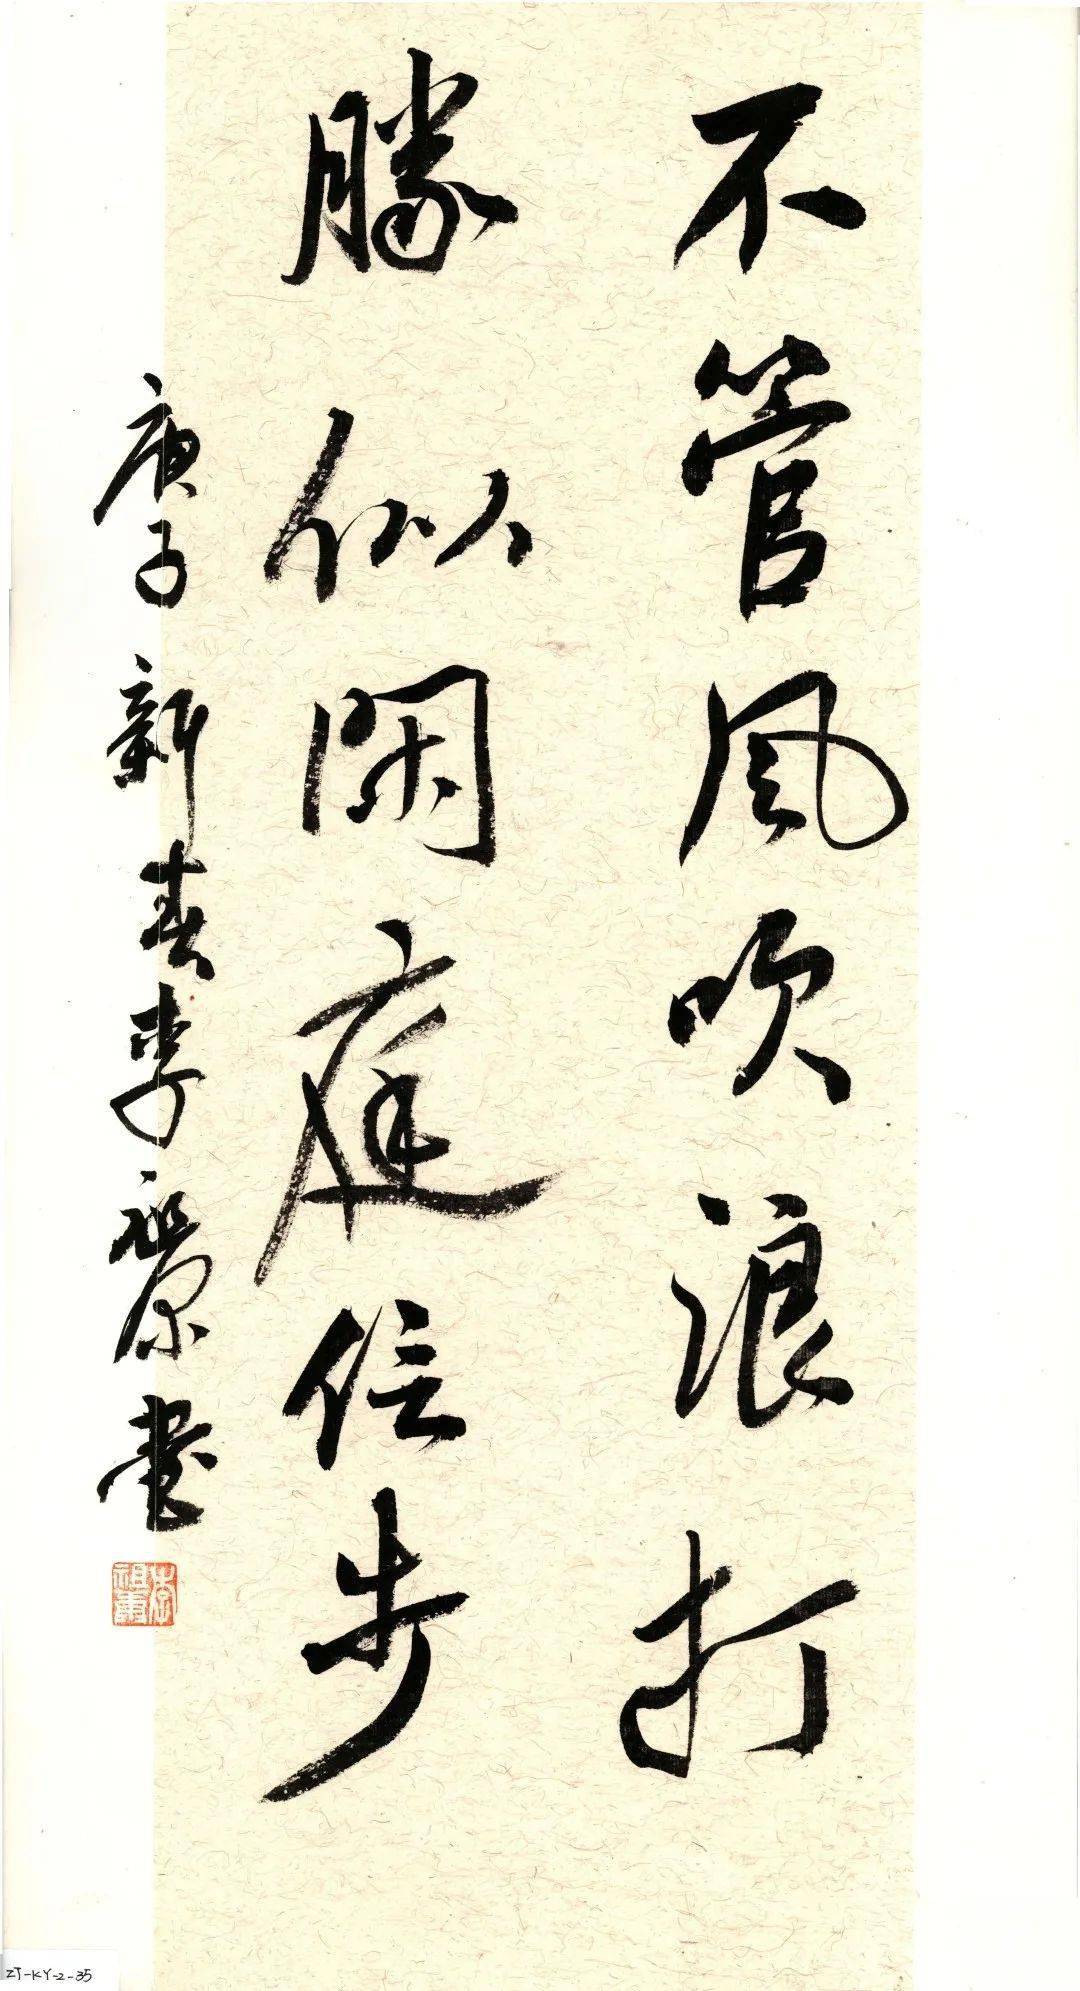 不管風吹浪打
勝似閑庭信步
庚子新春李祖書
ZJ-KY-2-35